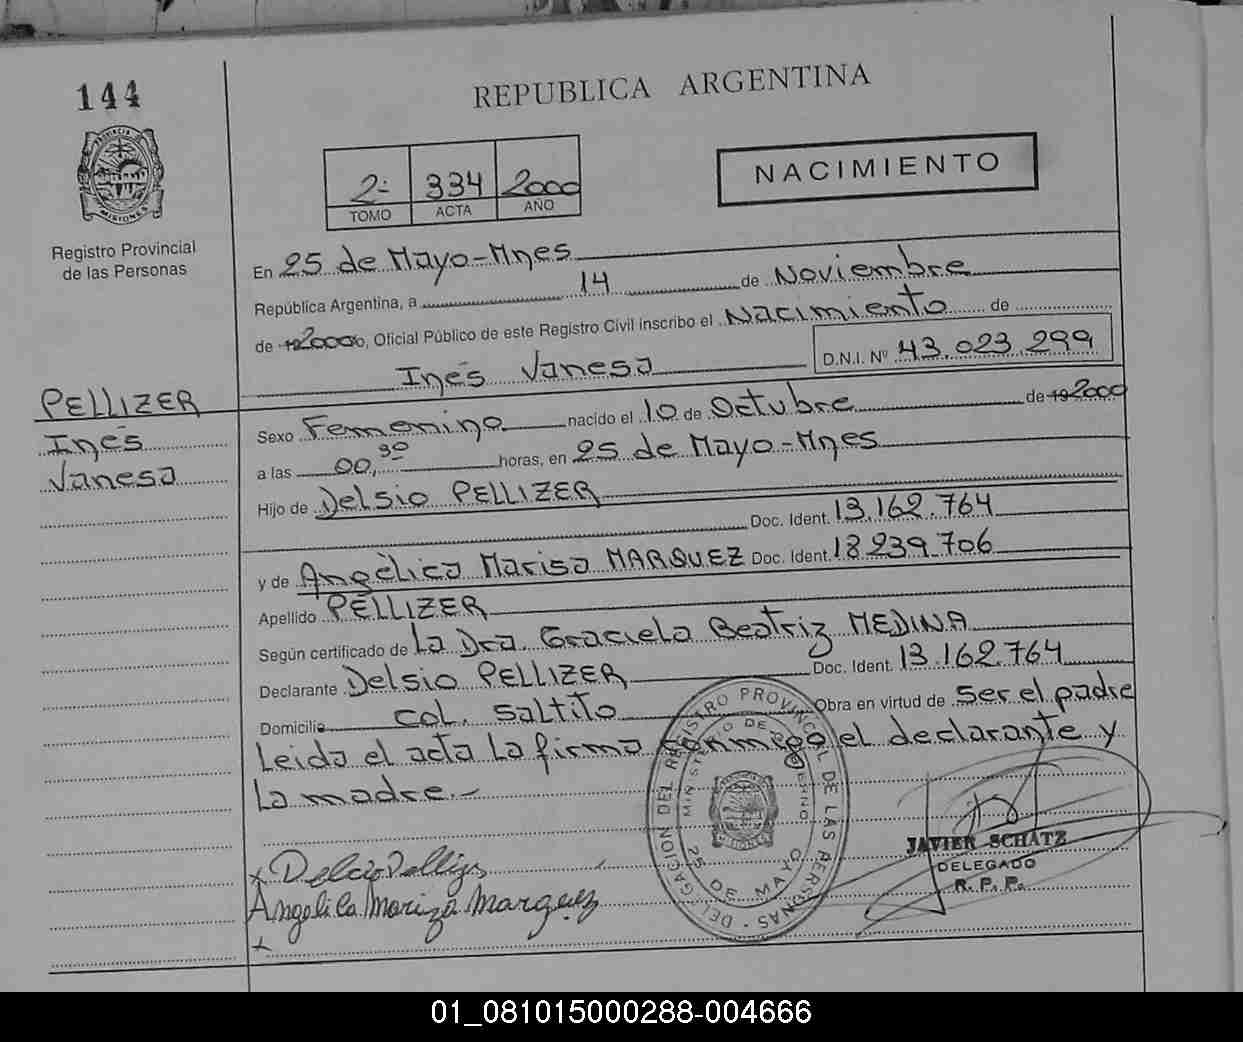 144
REPUBLICA ARGENTINA
PROVINCIA DE MISIONES
Registro Provincial
de las Personas
2- 334 2000
TOMO ACTA AÑO
NACIMIENTO
En 25 de Mayo-Mnes
República Argentina, a 14 de Noviembre
de 192000, Oficial Público de este Registro Civil inscribo el Nacimiento de
Inés Vanesa D.N.I. Nº 43.023.299
PELLIZER
Inés
Vanesa
Sexo Femenino nacido el 10 de Octubre de 192000
a las 00,30 horas, en 25 de Mayo-Mnes
Hijo de Delsio PELLIZER
Doc. Ident. 13.162.764
y de Angélica Marisa MARQUEZ Doc. Ident. 18.239.706
Apellido PELLIZER
Según certificado de La Dra. Graciela Beatriz MEDINA
Declarante Delsio PELLIZER Doc. Ident. 13.162.764
Domicilio Col. Saltito Obra en virtud de Ser el padre
Leida el acta La firma conmigo el declarante y
La madre.-
DELEGACION DEL REGISTRO PROVINCIAL DE LAS PERSONAS
MINISTERIO DE GOBIERNO
25 DE MAYO
JAVIER SCHATZ
DELEGADO
R. P. P.
x Delcio Pellizer
Angelica Mariza Marquez
x
01_081015000288-004666